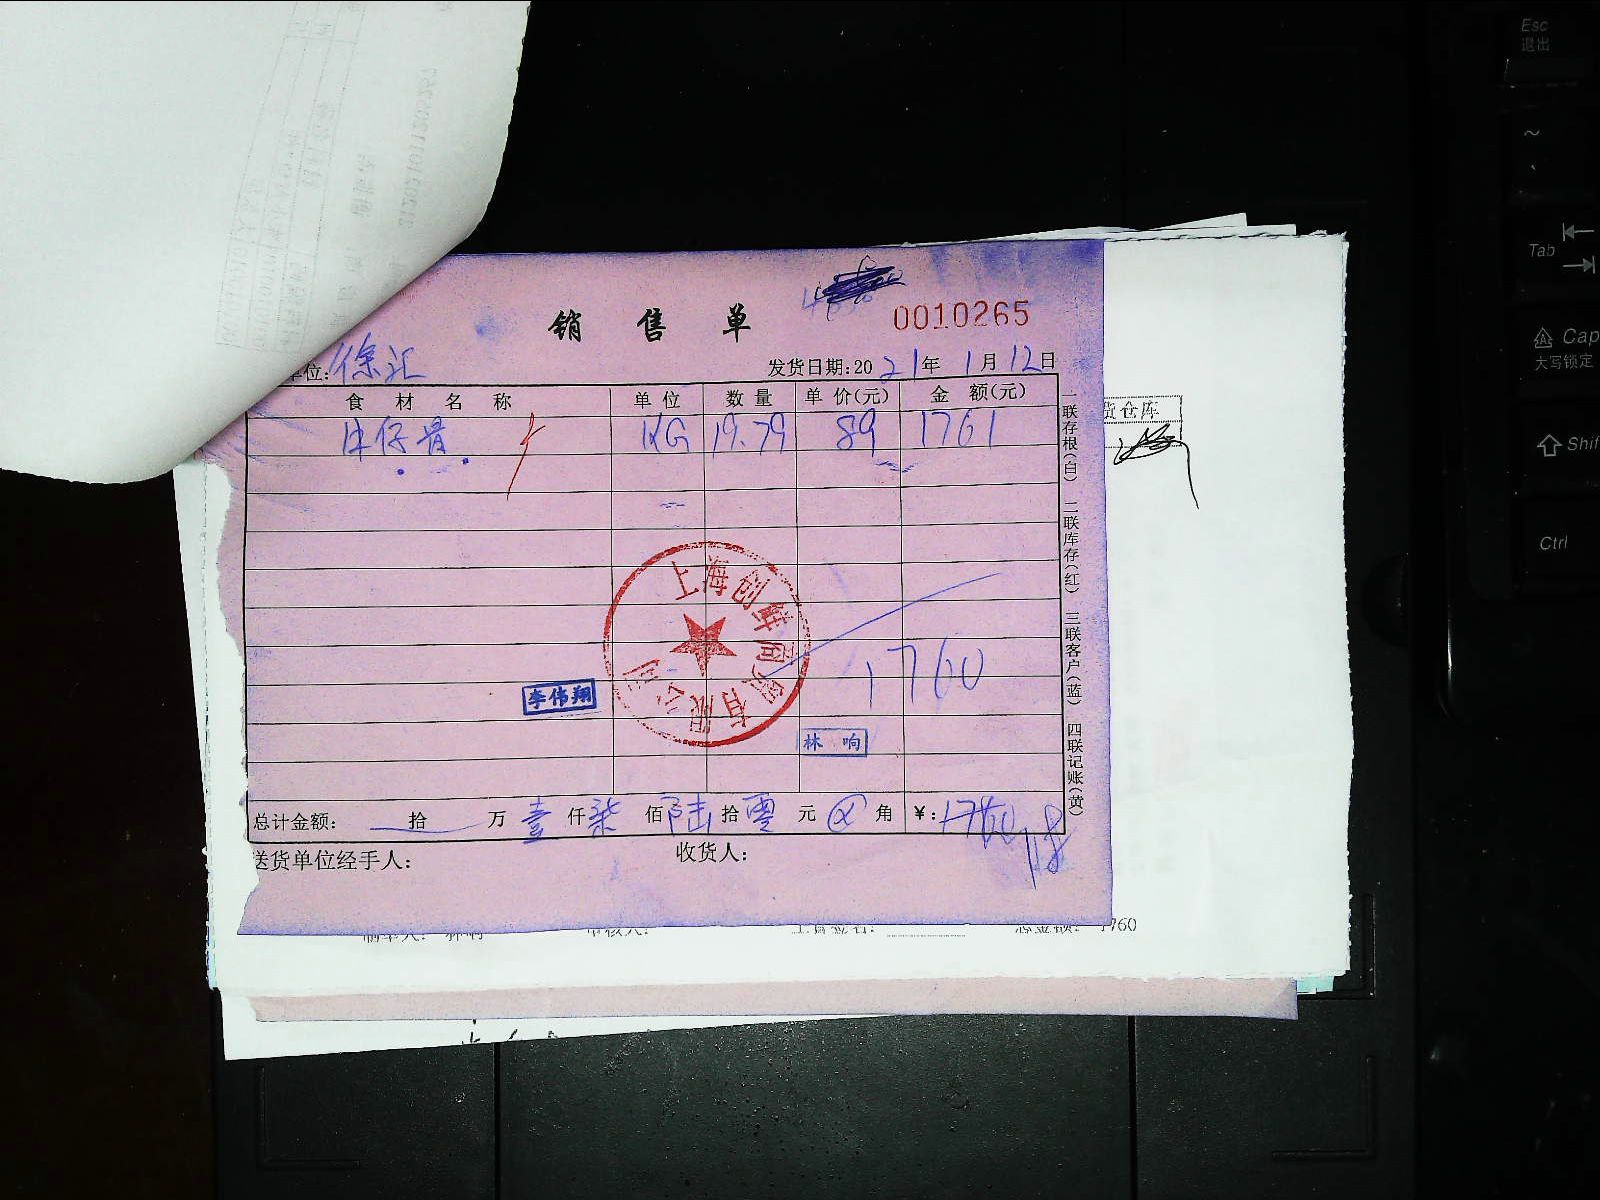 销售单
0010265
单位:徐汇
发货日期:2021年1月12日
食材名称 单位 数量 单价(元) 金额(元)
牛仔骨 KG 19.79 89 1761
1760
上海创 商贸有限公司
李伟翔
林响
总计金额: 拾 万 壹 仟 柒 佰 陆 拾 零 元 角 ¥:1760
送货单位经手人: 收货人:
一联存根(白) 二联库存(红) 三联客户(蓝) 四联记账(黄)
货仓库
总金额: 1760
Esc
退出
~
Tab
Cap
大写锁定
Shif
Ctrl